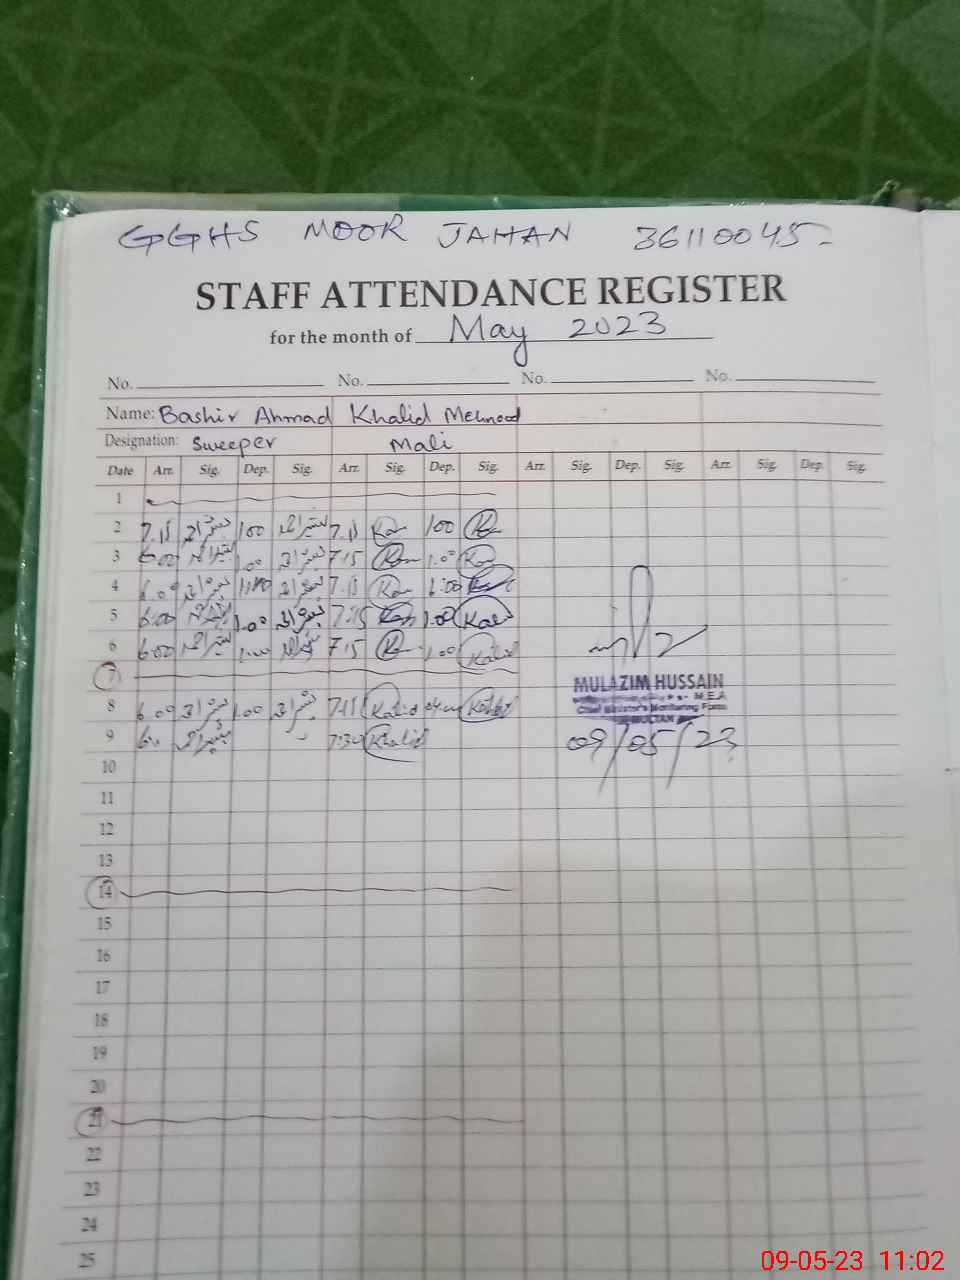 GGHS MOOR JAHAN 36110045
STAFF ATTENDANCE REGISTER
for the month of May 2023
No. No. No. No.
Name: Bashir Ahmad Khalid Mehmood
Designation: Sweeper Mali
Date Arr. Sig. Dep. Sig. Arr. Sig. Dep. Sig. Arr. Sig. Dep. Sig. Arr. Sig. Dep. Sig.
1
2 7.15 بشیراحمد 1.00 بشیراحمد 7.15 100
3 6.00 بشیراحمد 1.00 بشیراحمد 7.15 1.00
4 6.00 بشیراحمد بشیراحمد 7.15
5 6.00 بشیراحمد 1.00 بشیراحمد 7.15 1.00
6 6.00 بشیراحمد 1.00 بشیراحمد 7.15 1.00
7
8 6.00 بشیراحمد 1.00 بشیراحمد 7.15 Khalid
9 بشیراحمد 7:30 Khalid
MULAZIM HUSSAIN
M.E.A
Chief Minister's Monitoring Force
MULTAN
09/05/23
10
11
12
13
14
15
16
17
18
19
20
21
22
23
24
25
09-05-23 11:02